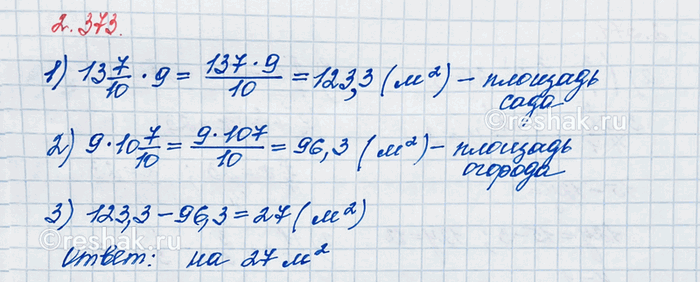 2.373.
1) 13 7/10 · 9 = 137·9/10 = 123,3 (м²) – площадь
сада
2) 9·10 7/10 = 9·107/10 = 96,3 (м²) – площадь
огорода
3) 123,3 – 96,3 = 27 (м²)
Ответ: на 27 м²
©reshak.ru
©reshak.ru